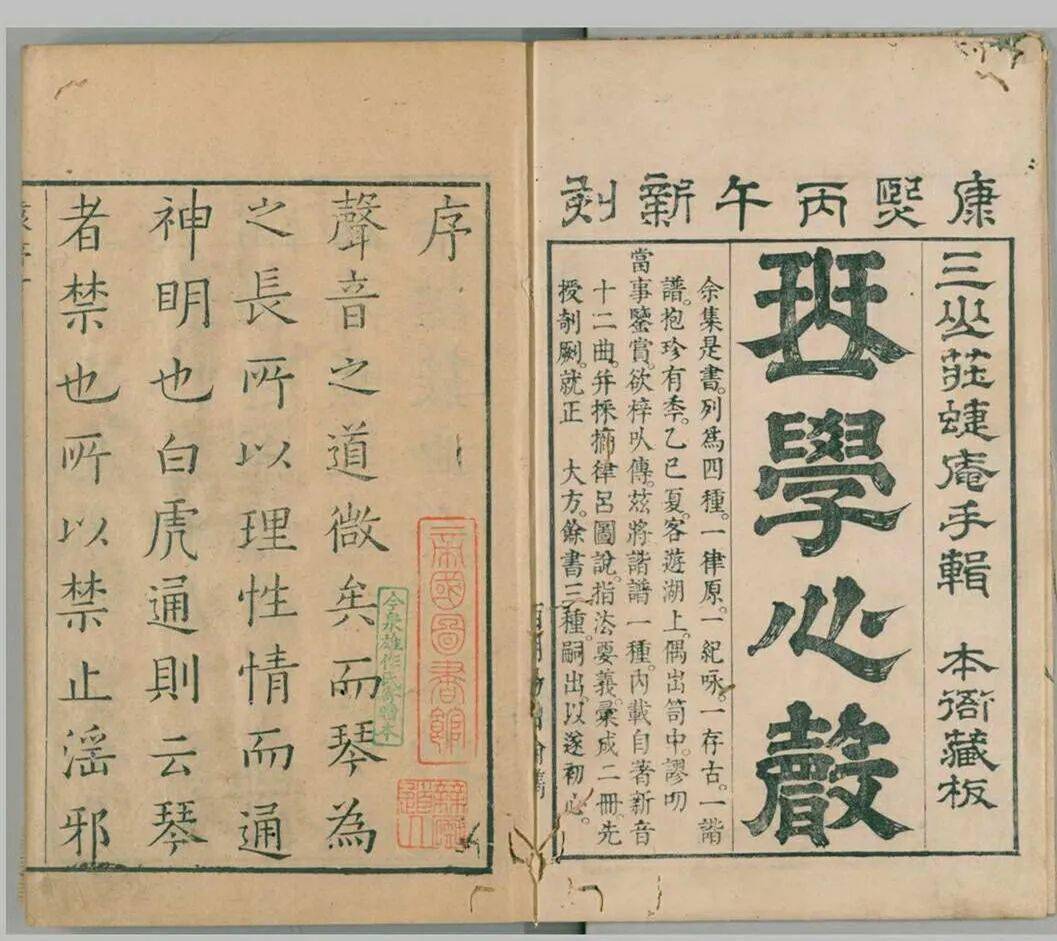 康熙丙午新刻
三山莊蜨庵手輯　本衙藏板
琴學心聲
余集是書。列爲四種。一律原。一紀咏。一存古。一諧
譜。抱珍有季。乙巳夏。客遊湖上。偶出笥中。謬叨
當事鑒賞。欲梓以傳。茲將諧譜一種。內載自著新音
十二曲。并採摘律呂圖說。指法要義。彙成二冊。先
授剞劂。就正　大方。餘書三種。嗣出。以遂初心。
序
聲音之道微矣而琴為
之長所以理性情而通
神明也白虎通則云琴
者禁也所以禁止淫邪
帝國圖書館
今泉雄作氏寄贈本